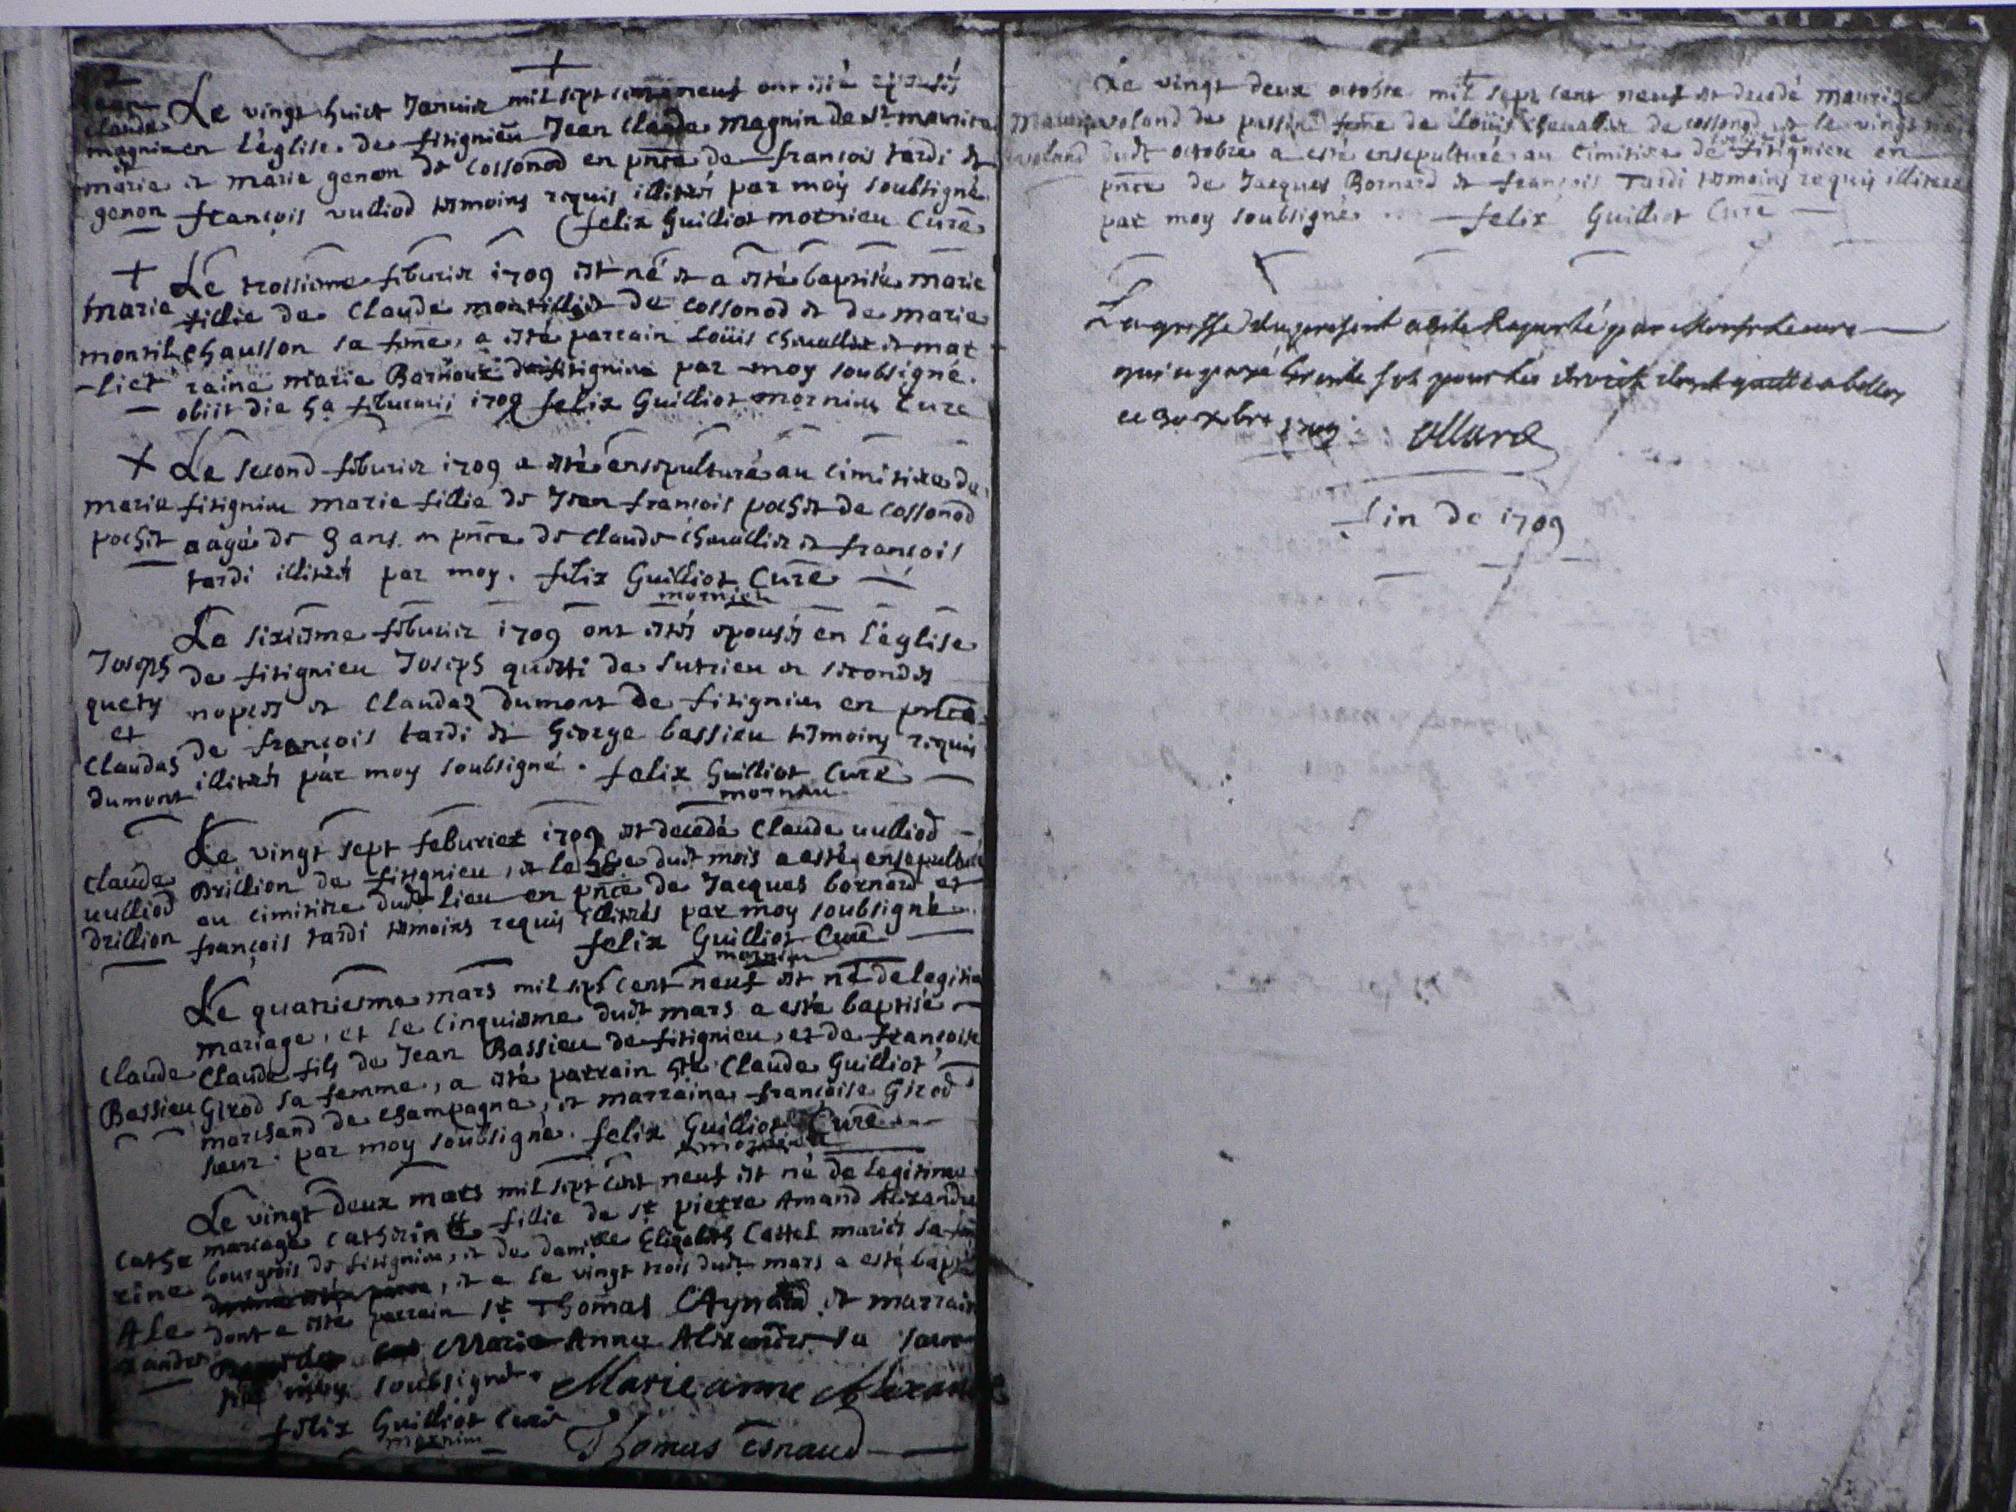 Jean
Claude
magnin
et
marie
genon
Le vingt huict Janvier mil sept cent neuf ont esté espousés
en l'église de fitignieu Jean Claude magnin de st maurice
et marie genon de cossonod en pnce de francois tardi et
françois vulliod tesmoins requis illiterés par moy soubsigné
felix Guilliot mornieu Curé
marie
montil
-liet
Le troisieme feburier 1709 est né et a esté baptisée marie
fillie de Claude montilliet de cossonod et de marie
chausson sa feme, a esté parrain Loüis chevallier et mar
raine marie Barnoux de fitignieu par moy soubsigné.
obiit die 5a februarij 1709 felix Guilliot mornieu Curé
marie
pochet
Le second feburier 1709 a esté ensepulturé au cimitiere de
fitignieu marie fillie de Jean francois pochet de cossonod
aagé de 9 ans en pnce de Claude chevallier et françois
tardi illiterés par moy. felix Guilliot Curé
mornieu
Joseph
quety
et
Claudaz
dumont
Le sixiesme feburier 1709 ont estés epousés en l'église
de fitignieu Joseph quetti de sutrieu en secondes
nopces et Claudaz dumont de fitignieu en pnce
de françois tardi et George bassieu tesmoins requis
illiterés par moy soubsigné. felix Guilliot Curé
mornieu
claude
vulliod
drillion
Le vingt sept feburier 1709 est decedé Claude vulliod
Drillion de fitignieu, et le dudt mois a esté ensepulturé
au cimitiere dudt lieu en pnce de Jacques bornard et
françois tardi tesmoins requis illiterés par moy soubsigné
felix Guilliot Curé
mornieu
claude
Bassieu
Le quatriesme mars mil sept cent neuf est né de legitime
mariage, et le cinquiesme dudt mars a esté baptisé
Claude fils de Jean Bassieu de fitignieu, et de francoise
Girod sa femme, a esté parrain Claude Guilliot
marchand de champagne, et marraine françoise Girod
sœur. par moy soubsigné. felix Guilliot Curé
mornieu
Cathe
rine
Ale
xandre
Le vingt deux mars mil sept cent neuf est né de legitime
mariage catherine fillie de sr pierre Amand Alexandre
bourgeois de fitignieu, et de damlle Elizabeth Castel mariés sa
, et a le vingt trois dudt mars a esté bapt
dont a esté parrain sr Thomas et marrain
Marie Anne Alexandre sa sœur
par moy soubsigné. Marie anne Alexandre
felix Guilliot Curé
mornieu
Thomas
Le vingt deux octobre mil sept cent neuf est decedé Maurize
voland de passin feme de Loüis Chevalier de cossonod et le vingt
dudt octobre a esté ensepulturé au cimitiere de fitignieu en
pnce de Jacques Bornard et françois Tardi tesmoins requis illiterés
par moy soubsigné. felix Guilliot Curé
La grosse du present a esté Raporté par Monsr le curé
qui a payé trente sols pour les droits dont quitte a belley
ce 30 xbre 1709
fin de 1709